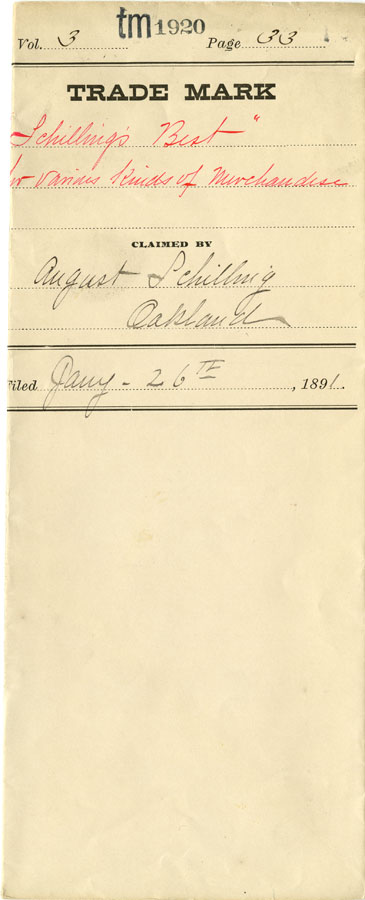 tm 1920
Vol. 3 Page 33
TRADE MARK
Schilling's Best"
for various kinds of Merchandise
CLAIMED BY
August Schilling
Oakland
Filed Jany - 26TH, 1891.